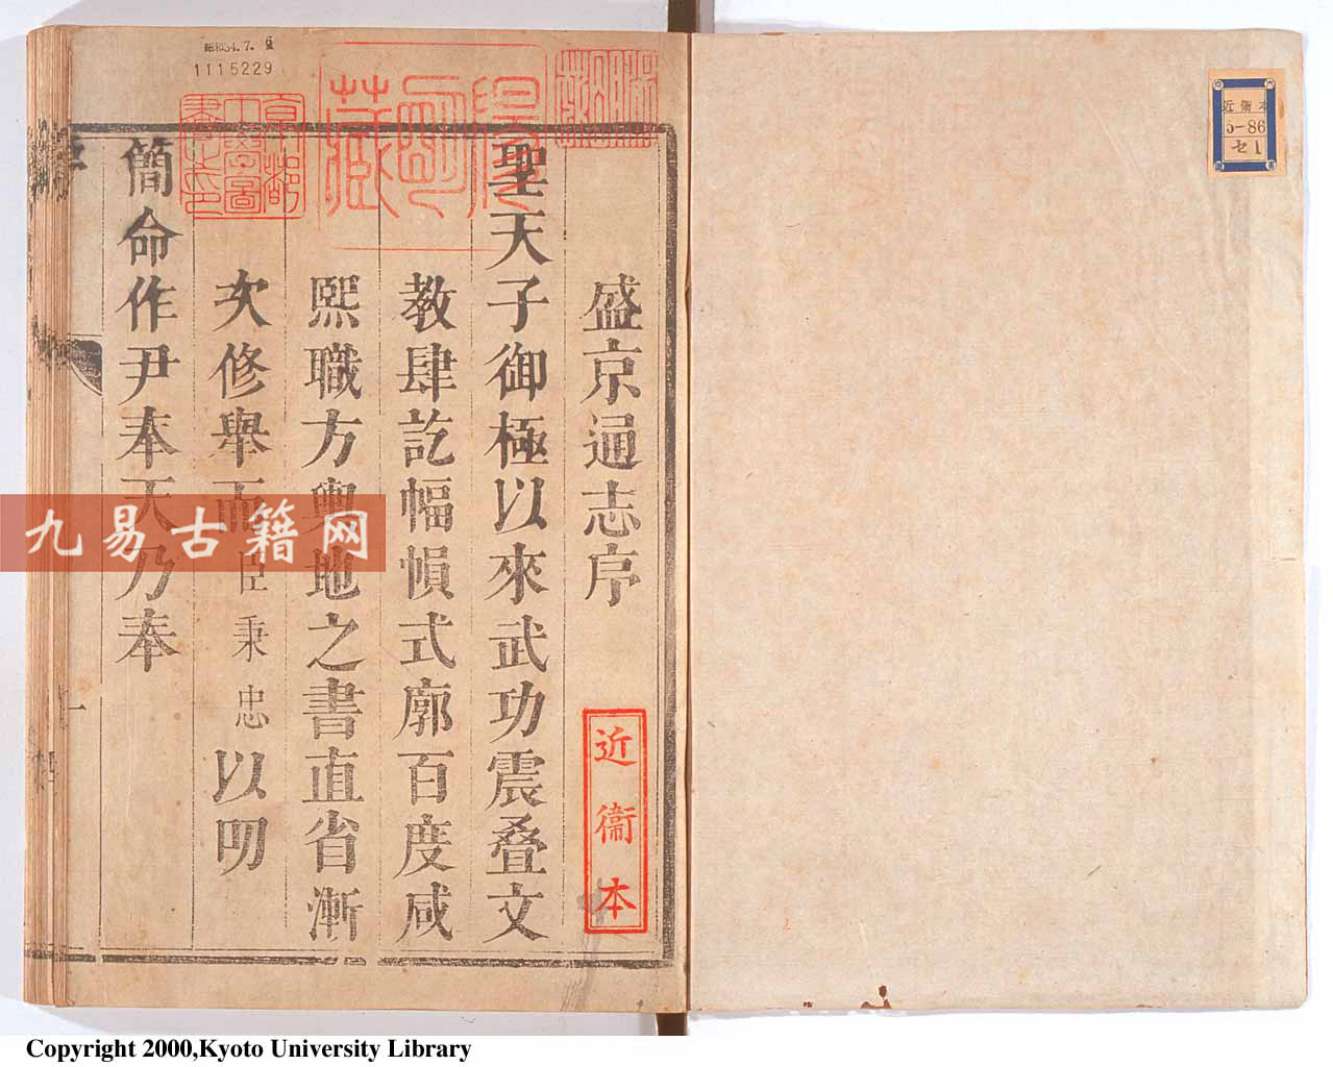 盛京通志序
聖天子御極以來武功震疊文
教肆訖幅幀式廓百度咸
熙職方輿地之書直省漸
次修舉而臣秉忠以叨
簡命作尹奉天乃奉
近衞本
京都
帝國大學圖
書之印
陽明
藏
1115229
近衞本
5-86
セ1
九易古籍网
Copyright 2000,Kyoto University Library